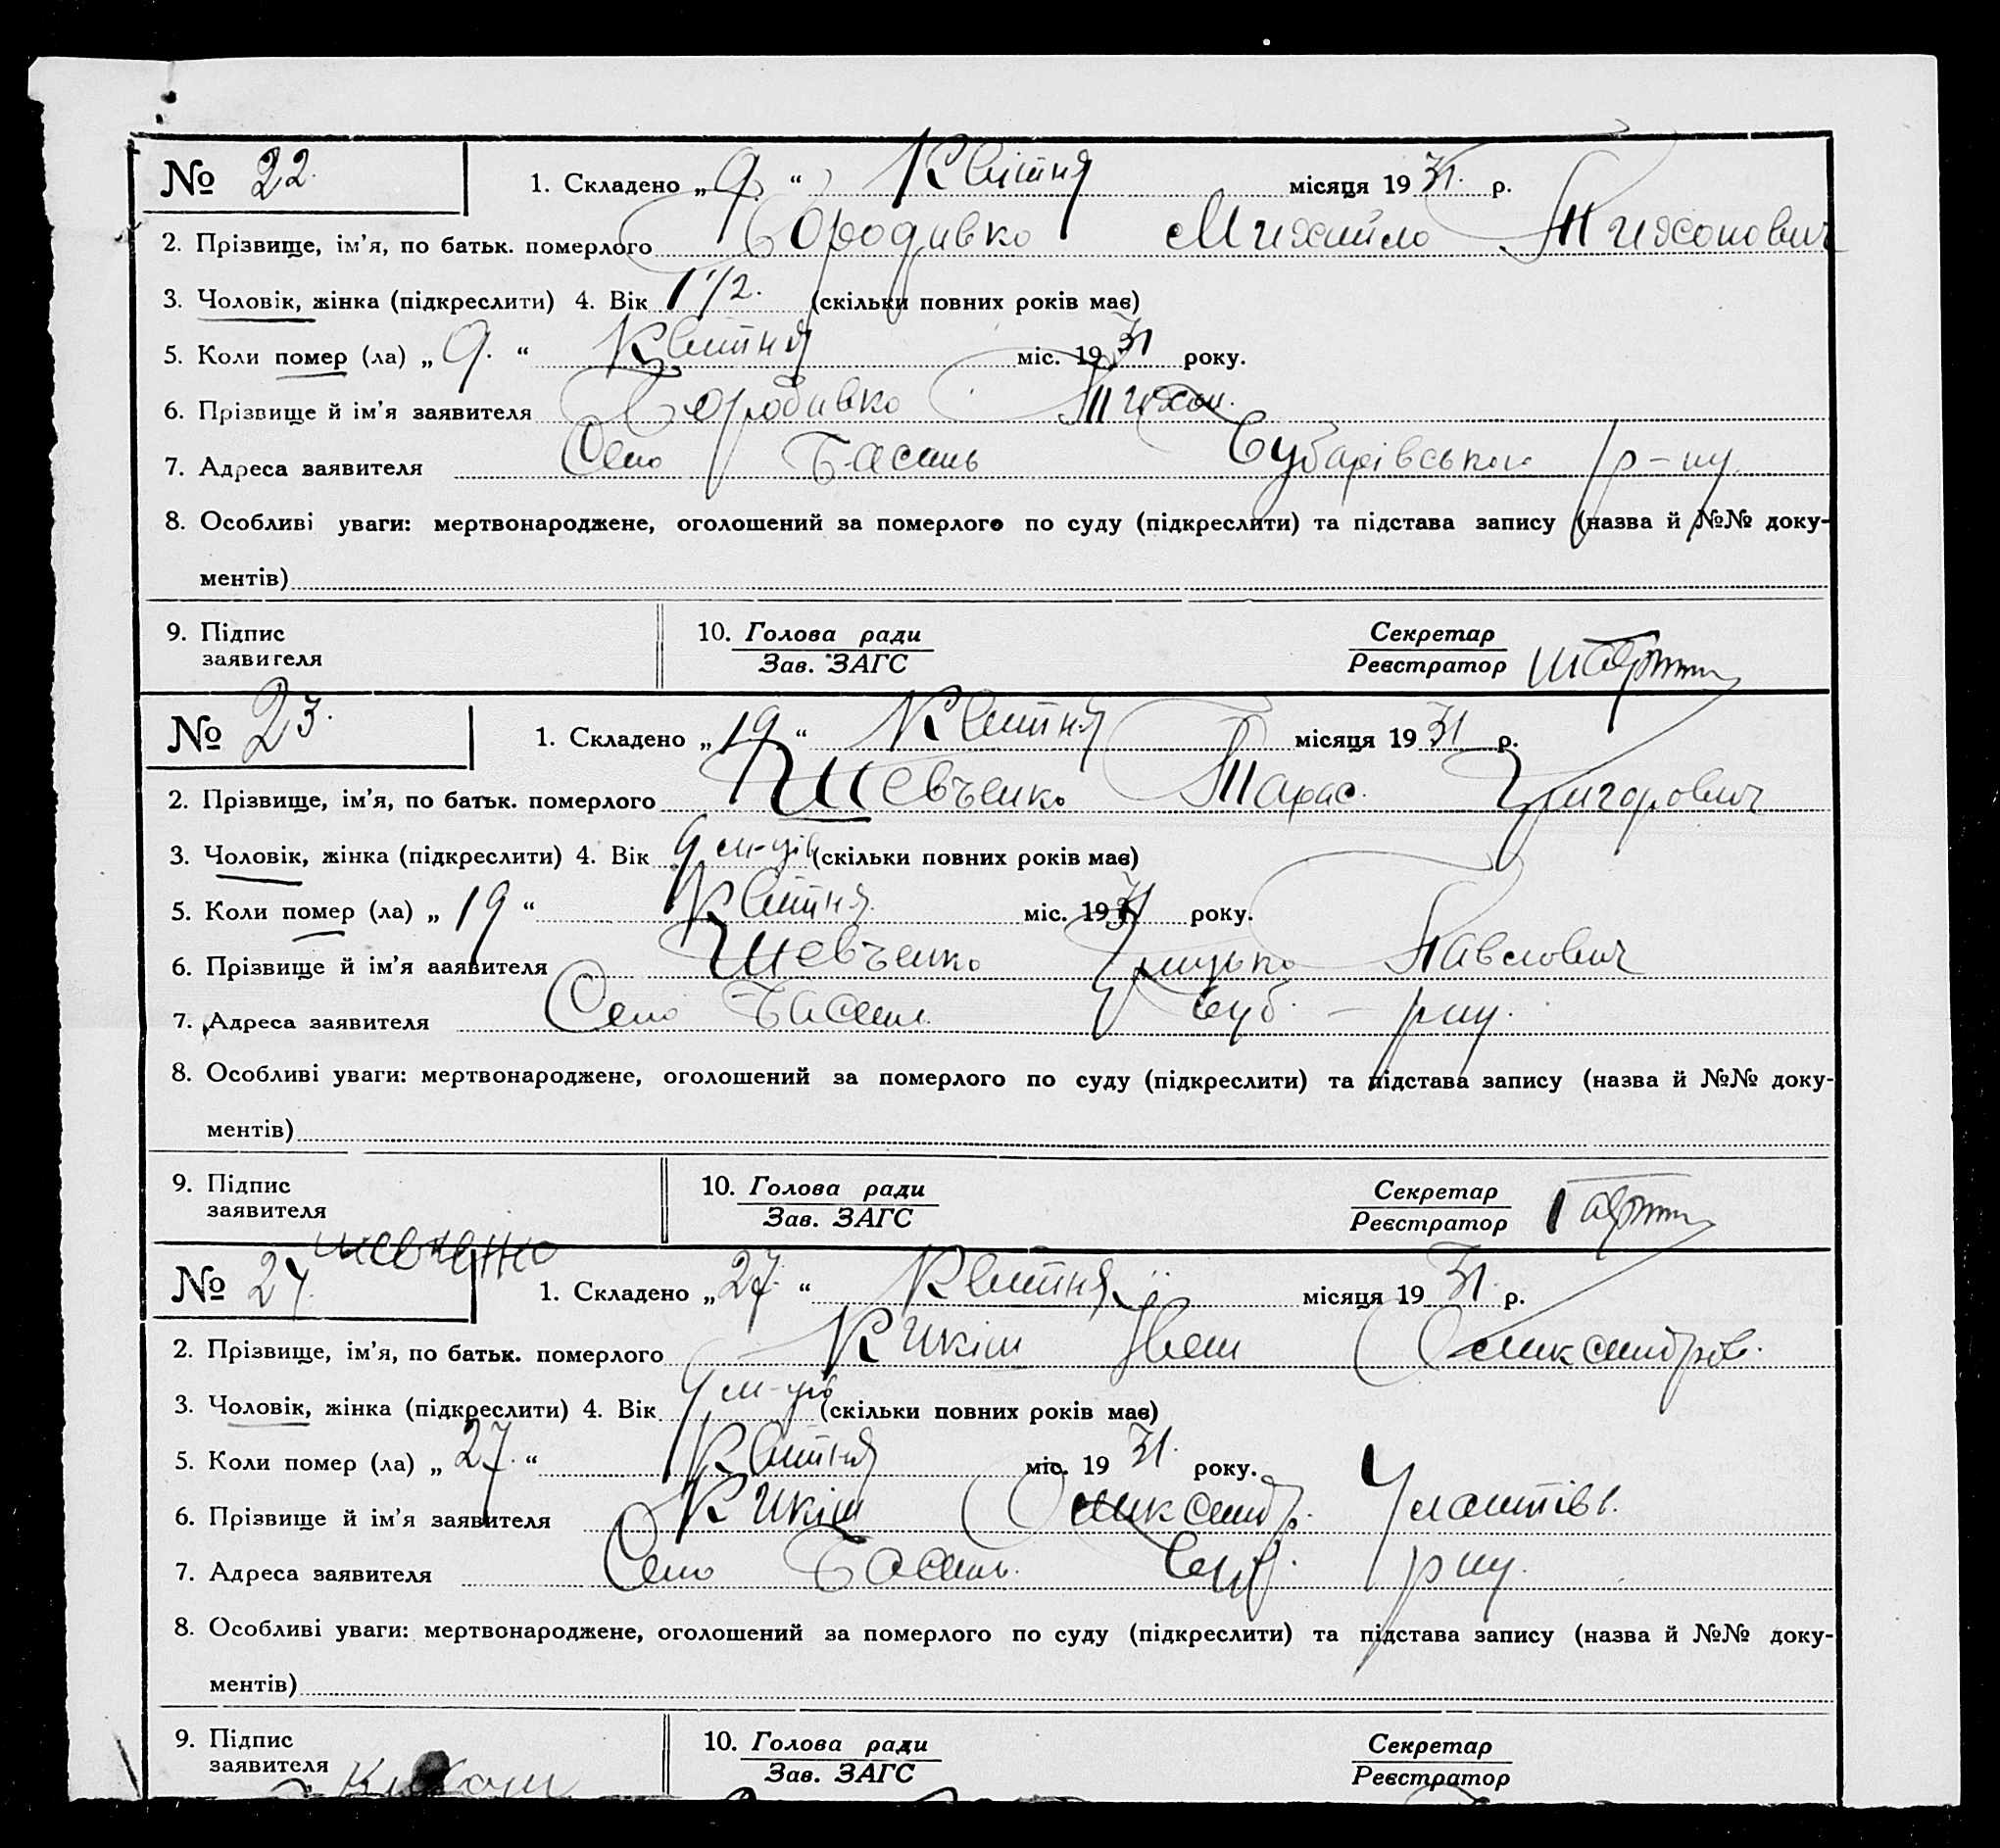 № 22. 1. Складено „9“ Квітня місяця 1931. р.
2. Прізвище, ім’я, по батьк. померлого Бородивко Михайло Тихонович
3. Чоловік, жінка (підкреслити) 4. Вік 1 1/2. (скільки повних років має)
5. Коли помер (ла) „9.“ Квітня міс. 1931 року.
6. Прізвище й ім’я заявителя Бородивко Тихон.
7. Адреса заявителя Село Басань Чубарівськоі р-ну
8. Особливі уваги: мертвонароджене, оголошений за померлого по суду (підкреслити) та підстава запису (назва й №№ доку-
ментів)
9. Підпис 10. Голова ради Секретар
заявителя Зав. ЗАГС Реєстратор
№ 23. 1. Складено „19“ Квітня місяця 1931 р.
2. Прізвище, ім’я, по батьк. померлого Шевченко Тарас. Григорович
3. Чоловік, жінка (підкреслити) 4. Вік 9 м-ців (скільки повних років має)
5. Коли помер (ла) „19“ Квітня міс. 1931 року.
6. Прізвище й ім’я заявителя Шевченко Грицько Павлович
7. Адреса заявителя Село Басань Чуб - рну.
8. Особливі уваги: мертвонароджене, оголошений за померлого по суду (підкреслити) та підстава запису (назва й №№ доку-
ментів)
9. Підпис 10. Голова ради Секретар
заявителя Зав. ЗАГС Реєстратор
шевченко
№ 24. 1. Складено „27.“ Квітня місяця 1931. р.
2. Прізвище, ім’я, по батьк. померлого Кикіш Іван Олександров.
3. Чоловік, жінка (підкреслити) 4. Вік 9 м-ців (скільки повних років має)
5. Коли помер (ла) „27.“ Квітня міс. 1931. року.
6. Прізвище й ім’я заявителя Кикіш Олександр.
7. Адреса заявителя Село Басань. Чуб. рну.
8. Особливі уваги: мертвонароджене, оголошений за померлого по суду (підкреслити) та підстава запису (назва й №№ доку-
ментів)
9. Підпис 10. Голова ради Секретар
заявителя Зав. ЗАГС Реєстратор